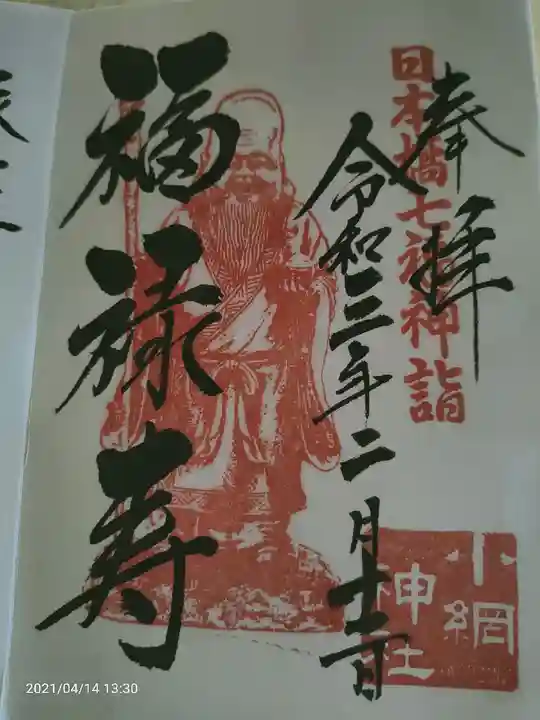 奉拝
日本橋七福神詣
令和三年二月十二日
福禄寿
小網
神社
2021/04/14 13:30